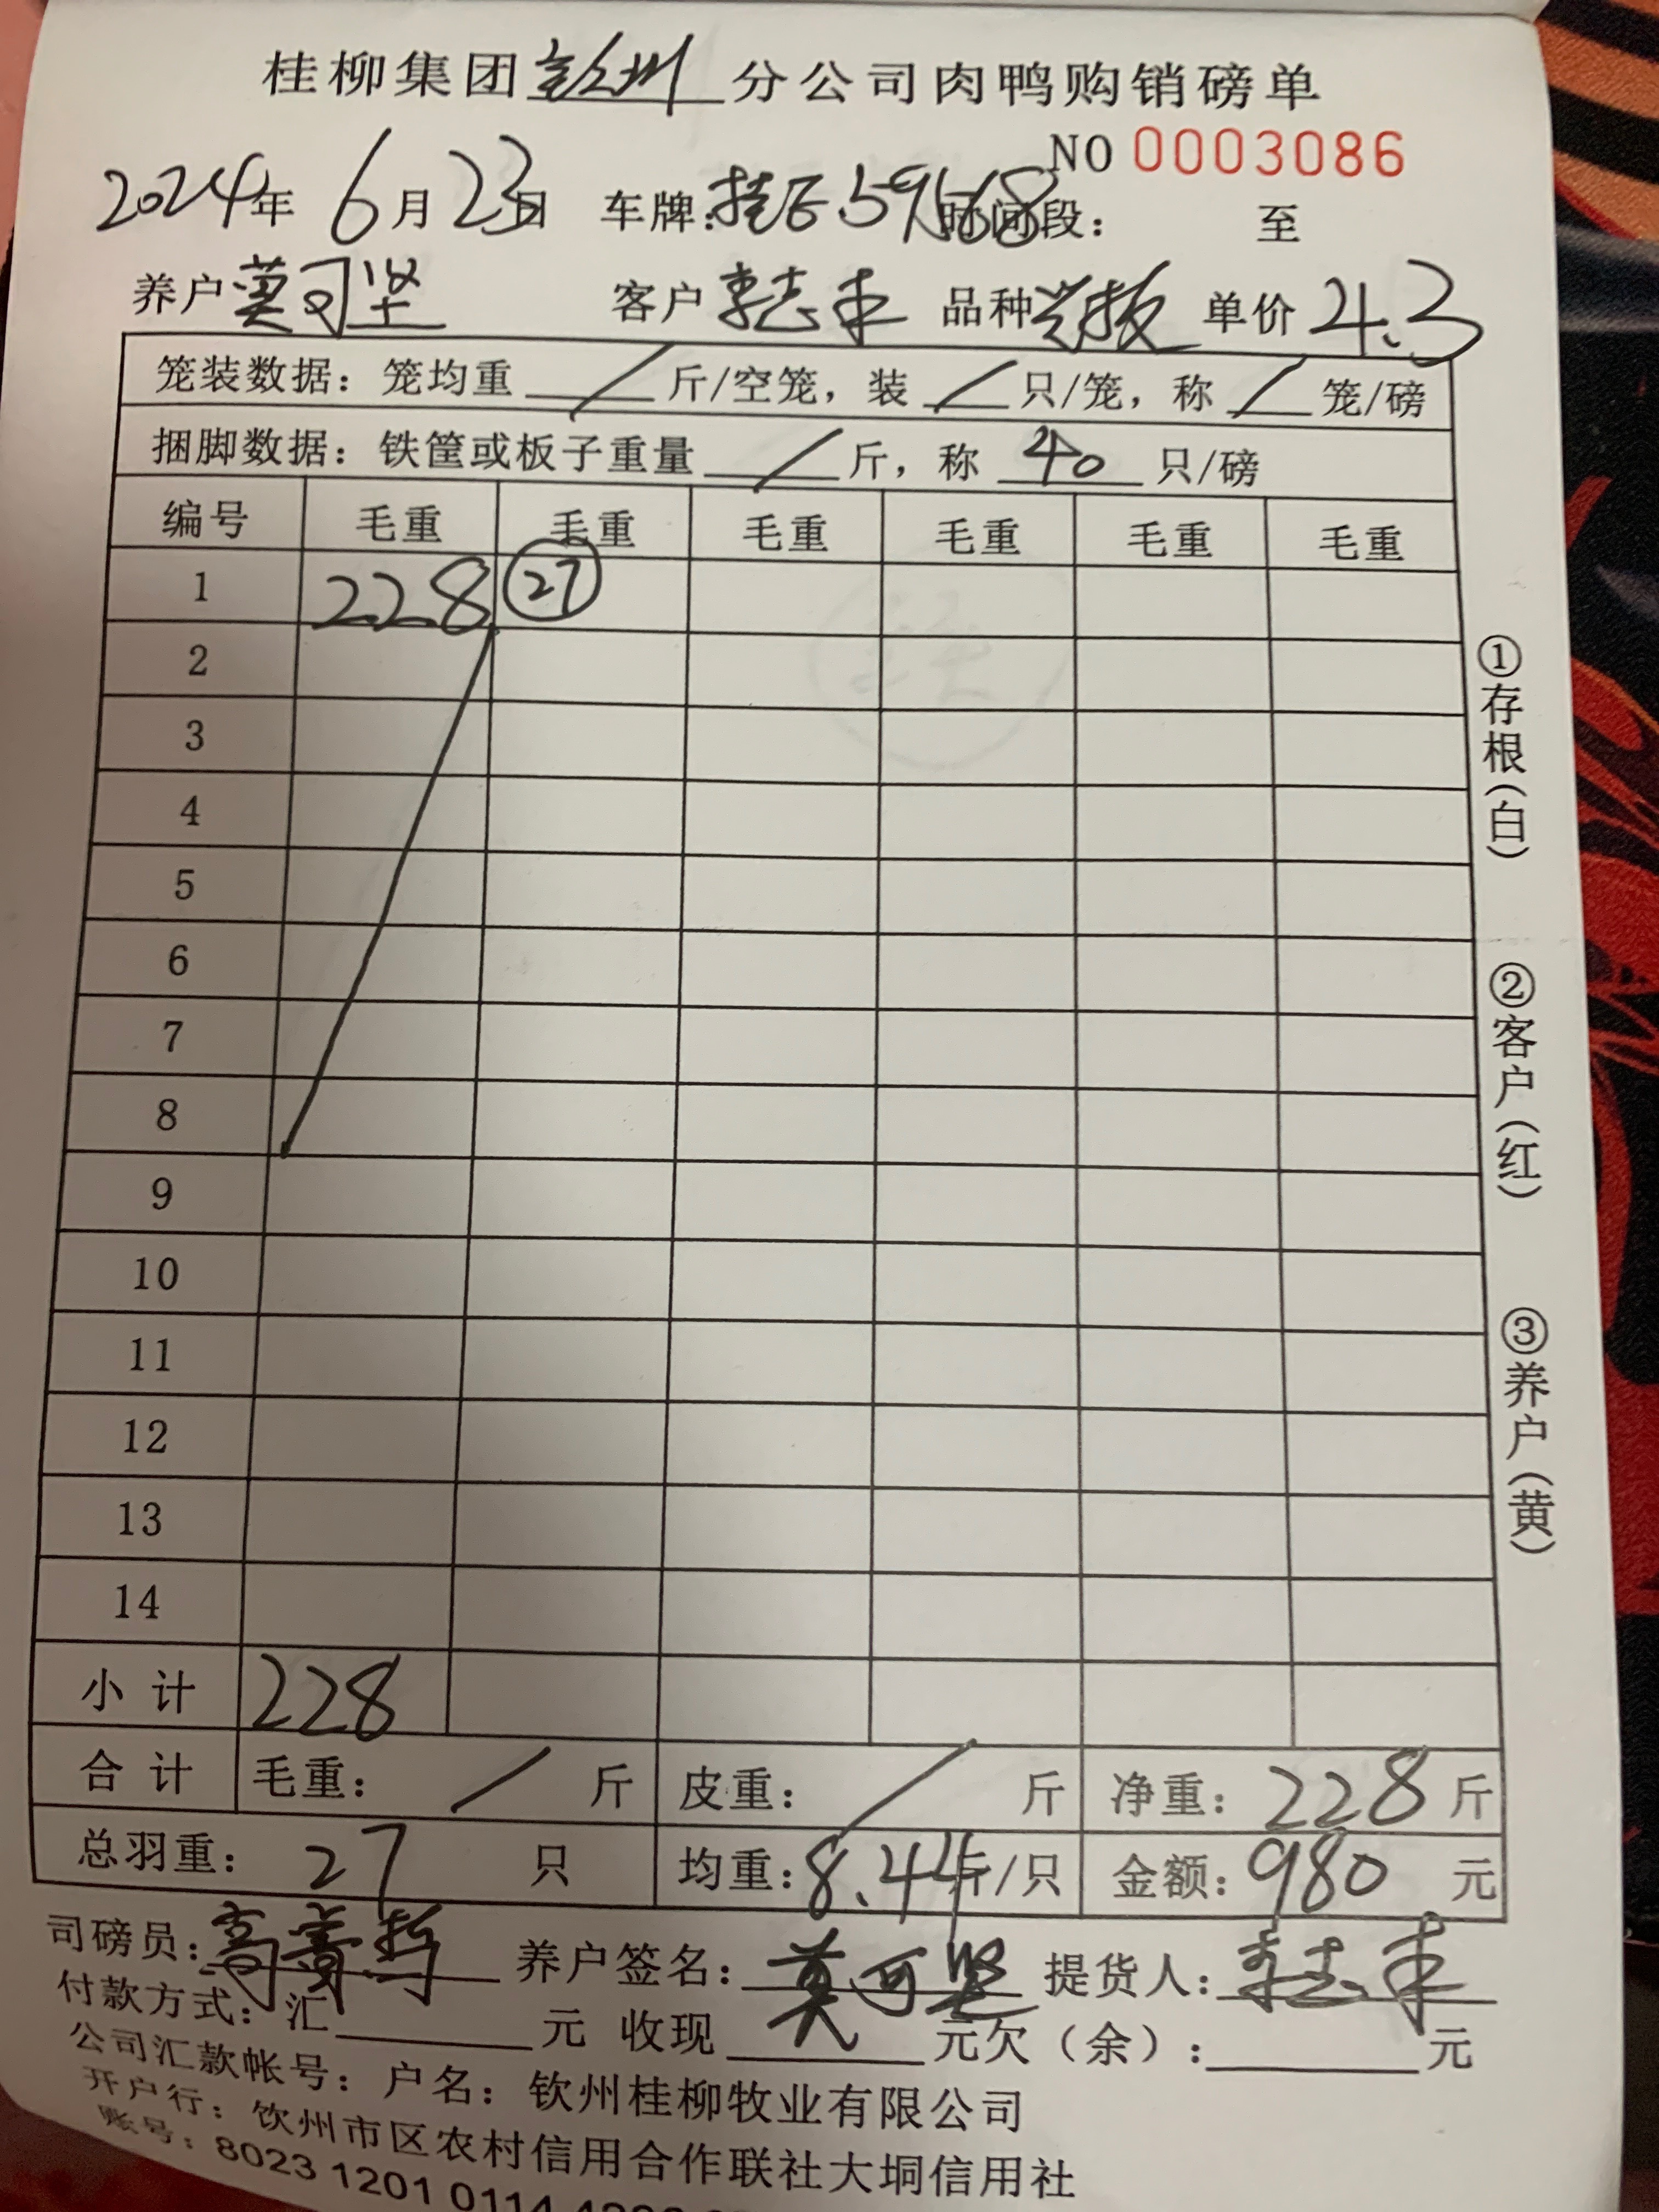 桂柳集团钦州分公司肉鸭购销磅单
NO 0003086
2024年 6月23日 车牌: 59168 时间段: 至
养户 莫可坚 客户 李志 品种 单价 4.3
笼装数据: 笼均重 / 斤/空笼, 装 / 只/笼, 称 / 笼/磅
捆脚数据: 铁筐或板子重量 / 斤, 称 40 只/磅
编号 毛重 毛重 毛重 毛重 毛重 毛重
1 228 27
2
3
4
5
6
7
8
9
10
11
12
13
14
小计 228
合计 毛重: / 斤 皮重: / 斤 净重: 228 斤
总羽重: 27 只 均重: 8.44 斤/只 金额: 980 元
司磅员: 养户签名: 莫可坚 提货人: 李志
付款方式: 汇 元 收现 元欠(余): 元
公司汇款帐号: 户名: 钦州桂柳牧业有限公司
开户行: 钦州市区农村信用合作联社大垌信用社
账号: 8023 1201 0114
①存根(白)
②客户(红)
③养户(黄)